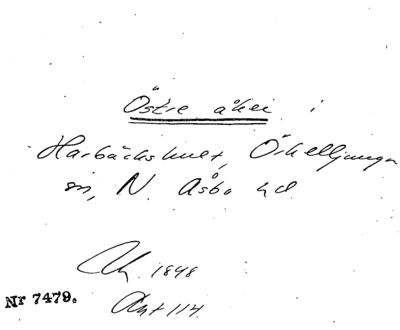 Östre åker i
Harbäckshult, Örkelljunga
sn, N. Åsbo hd.
1848
Nr 7479.
Akt 114.